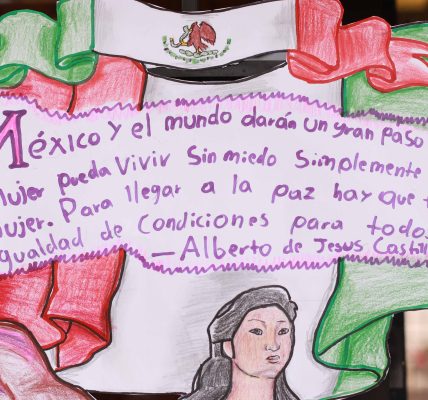 México y el mundo darán un gran paso
Mujer pueda vivir sin miedo simplemente
mujer. Para llegar a la paz hay que
igualdad de condiciones para todos
— Alberto de Jesus Castill